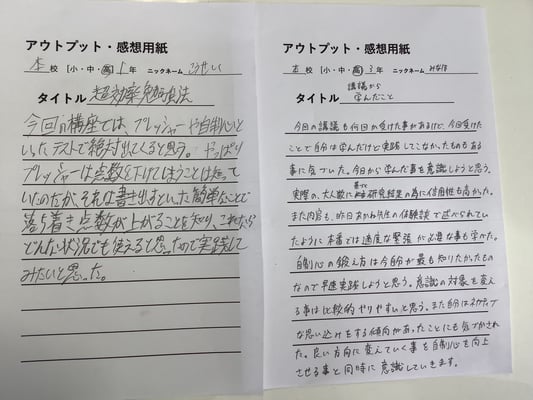 アウトプット・感想用紙
本校 [小・中・高] 1年 ニックネーム こうせい
タイトル 超効率勉強法
今回の講座では、プレッシャーや自制心と
いったテストで絶対出てくると思う。やっぱり
プレッシャーは点数を下げてしまうことは知って
いたのだが、それを書き出すといった簡単なことで
落ち着き点数が上がることを知り、これなら
どんな状況でも使えると思ったので実践して
みたいと思った。
アウトプット・感想用紙
本校 [小・中・高] 3年 ニックネーム みなほ
タイトル 講議から
学んだこと
今日の講議も何回か受けた事があるけど、今日受けた
ことで自分は学んだけど実践してこなかったものもある
事に気づいた。今日から学んだ事を意識しようと思う。
実際の、大人数に基づく研究結果の為に信用性も高かった。
また内容も、昨日あかね先生の体験談で述べられてい
たように本番では適度な緊張が必要な事も学べた。
自制心の鍛え方は今自分が最も知りたかったもの
なので早速実践しようと思う。意識の対象を変え
る事は比較的やりやすいと思う。また自分はネガティブ
な思い込みをする傾向があったことにも気づかされ
た。良い方向に変えていく事を自制心を向上
させる事と同時に意識していきます。